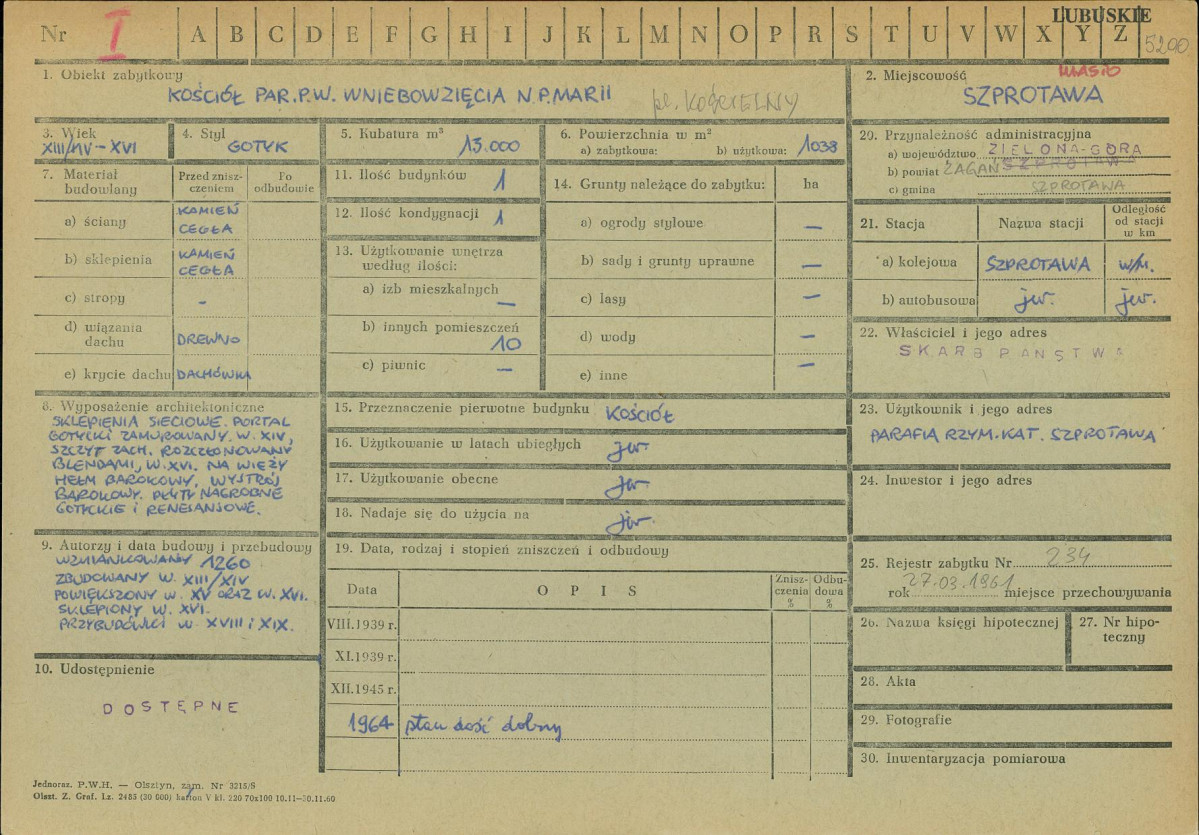 LUBUSKIE
Nr I A B C D E F G H I J K L M N O P R S T U V W X Y Z 5200
1. Obiekt zabytkowy
KOŚCIÓŁ PAR. P.W. WNIEBOWZIĘCIA N.P. MARII pl. KOŚCIELNY
2. Miejscowość MIASTO
SZPROTAWA
3. Wiek
XIII/XIV-XVI
4. Styl
GOTYK
5. Kubatura m³
13.000
6. Powierzchnia w m²
a) zabytkowa: b) użytkowa: 1038
20. Przynależność administracyjna
a) województwo ZIELONA-GÓRA
b) powiat ŻAGAŃ SZPROTAWA
c) gmina SZPROTAWA
7. Materiał budowlany
Przed zniszczeniem
Po odbudowie
a) ściany KAMIEŃ
CEGŁA
b) sklepienia KAMIEŃ
CEGŁA
c) stropy -
d) wiązania
dachu DREWNO
e) krycie dachu DACHÓWKA
11. Ilość budynków 1
12. Ilość kondygnacji 1
13. Użytkowanie wnętrza
według ilości:
a) izb mieszkalnych —
b) innych pomieszczeń
10
c) piwnic —
14. Grunty należące do zabytku: ha
a) ogrody stylowe —
b) sady i grunty uprawne —
c) lasy —
d) wody —
e) inne —
21. Stacja Nazwa stacji Odległość
od stacji
w km
a) kolejowa SZPROTAWA w/m.
b) autobusowa jw. jw.
22. Właściciel i jego adres
SKARB PAŃSTWA
8. Wyposażenie architektoniczne
SKLEPIENIA SIECIOWE. PORTAL
GOTYCKI ZAMUROWANY. W. XIV,
SZCZYT ZACH. ROZCZŁONOWANY
BLENDAMI, W. XVI. NA WIEŻY
HEŁM BAROKOWY, WYSTRÓJ
BAROKOWY. PŁYTY NAGROBNE
GOTYCKIE I RENESANSOWE.
15. Przeznaczenie pierwotne budynku KOŚCIÓŁ
16. Użytkowanie w latach ubiegłych jw.
17. Użytkowanie obecne jw
18. Nadaje się do użycia na jw.
23. Użytkownik i jego adres
PARAFIA RZYM. KAT. SZPROTAWA
24. Inwestor i jego adres
9. Autorzy i data budowy i przebudowy
WZMIANKOWANY 1260
ZBUDOWANY W. XIII/XIV
POWIĘKSZONY W. XV ORAZ W. XVI.
SKLEPIONY W. XVI.
PRZYBUDÓWKI W XVIII i XIX.
19. Data, rodzaj i stopień zniszczeń i odbudowy
Data OPIS Zniszczenia % Odbudowa %
VIII.1939 r.
XI.1939 r.
XII.1945 r.
1964 stan dość dobry
25. Rejestr zabytku Nr 234
rok 27.03.1961 miejsce przechowywania
26. Nazwa księgi hipotecznej
27. Nr hipoteczny
28. Akta
29. Fotografie
30. Inwentaryzacja pomiarowa
10. Udostępnienie
DOSTĘPNE
Jednoraz. P.W.H. — Olsztyn, zam. Nr 3215/S
Olszt. Z. Graf. Lz. 2485 (30 000) karton V kl. 220 70x100 10.11—30.11.60